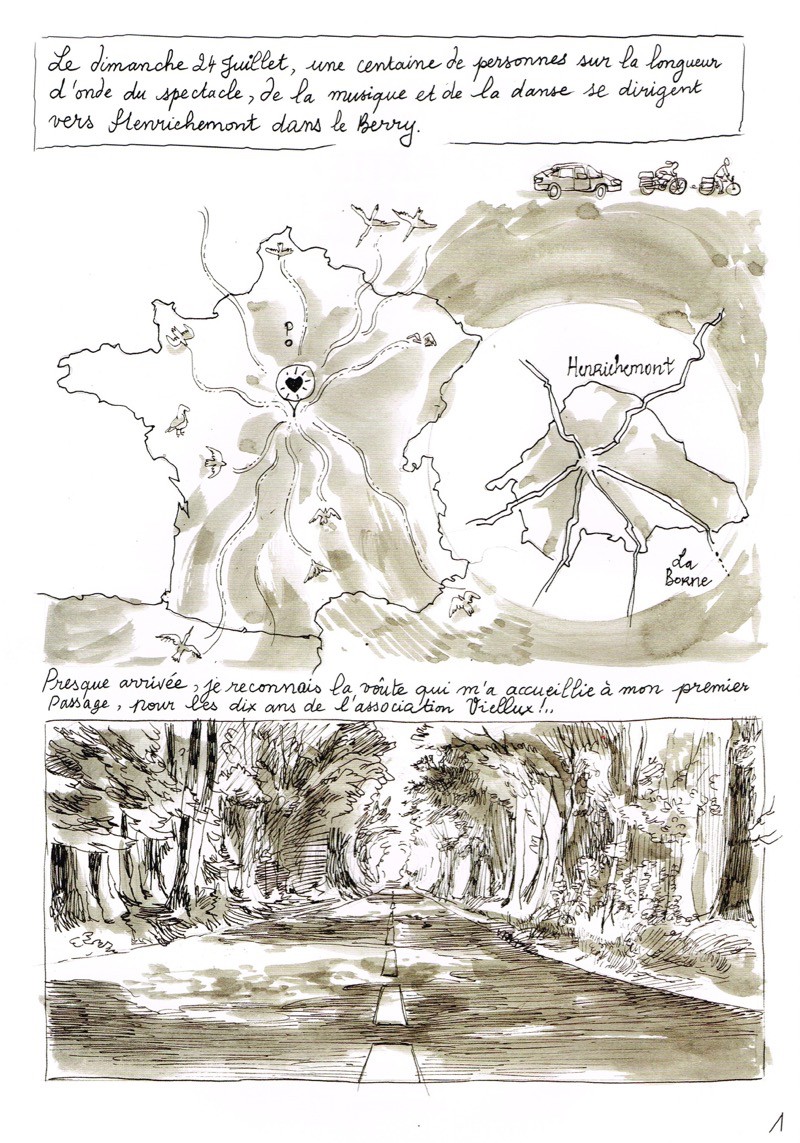 Le dimanche 24 Juillet, une centaine de personnes sur la longueur
d'onde du spectacle, de la musique et de la danse se dirigent
vers Henrichemont dans le Berry.
Henrichemont
La
Borne
Presque arrivée, je reconnais la voûte qui m'a accueillie à mon premier
Passage, pour les dix ans de l'association Viellux !..
1